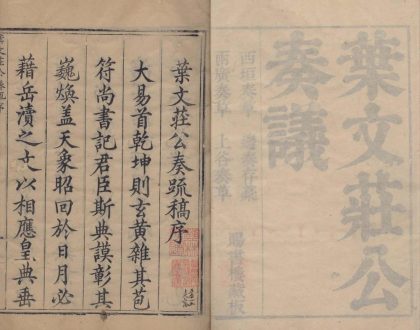 葉文莊公
奏議
西垣奏草
邊奏存稿
兩廣奏草
上谷奏草
賜書樓藏板
葉文莊公奏疏稿序
大易首乾坤則玄黃雜其苞
符尚書記君臣斯典謨彰其
巍煥盖天象昭回於日月必
藉岳瀆之
以相應皇典垂